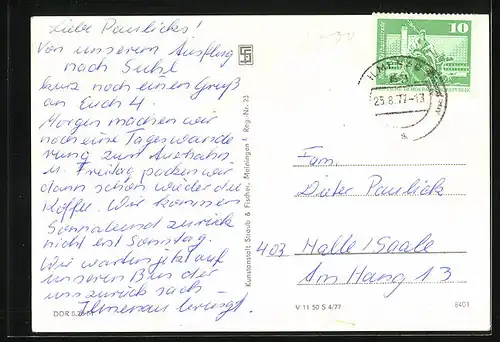 Liebe Paulicks!
Von unserem Ausflug
nach Suhl
kurz noch einen Gruß
an Euch 4.
Morgen machen wir
noch eine Tageswande
rung zum Auerhahn
u. Freitag packen wir
dann schon wieder die
Koffer. Wir kommen
Sonnabend zurück
nicht erst Sonntag.
Wir warten jetzt auf
unseren Bus der
uns zurück nach
Ilmenau bringt.
DDR 0,20 M
Kunstanstalt Straub & Fischer, Meiningen f. Reg.-Nr. 23
10
25.8.77-13
Fam.
Dieter Paulick
403 Halle/Saale
Am Hang 13
V 11 50 S 4/77
8401